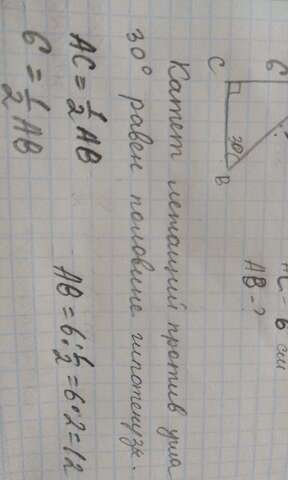 C
6
30°
B
AC = 6 см
AB - ?
Катет лежащий против угла
30° равен половине гипотенузе.
AC = 1/2 AB
6 = 1/2 AB
AB = 6 : 1/2 = 6 · 2 = 12